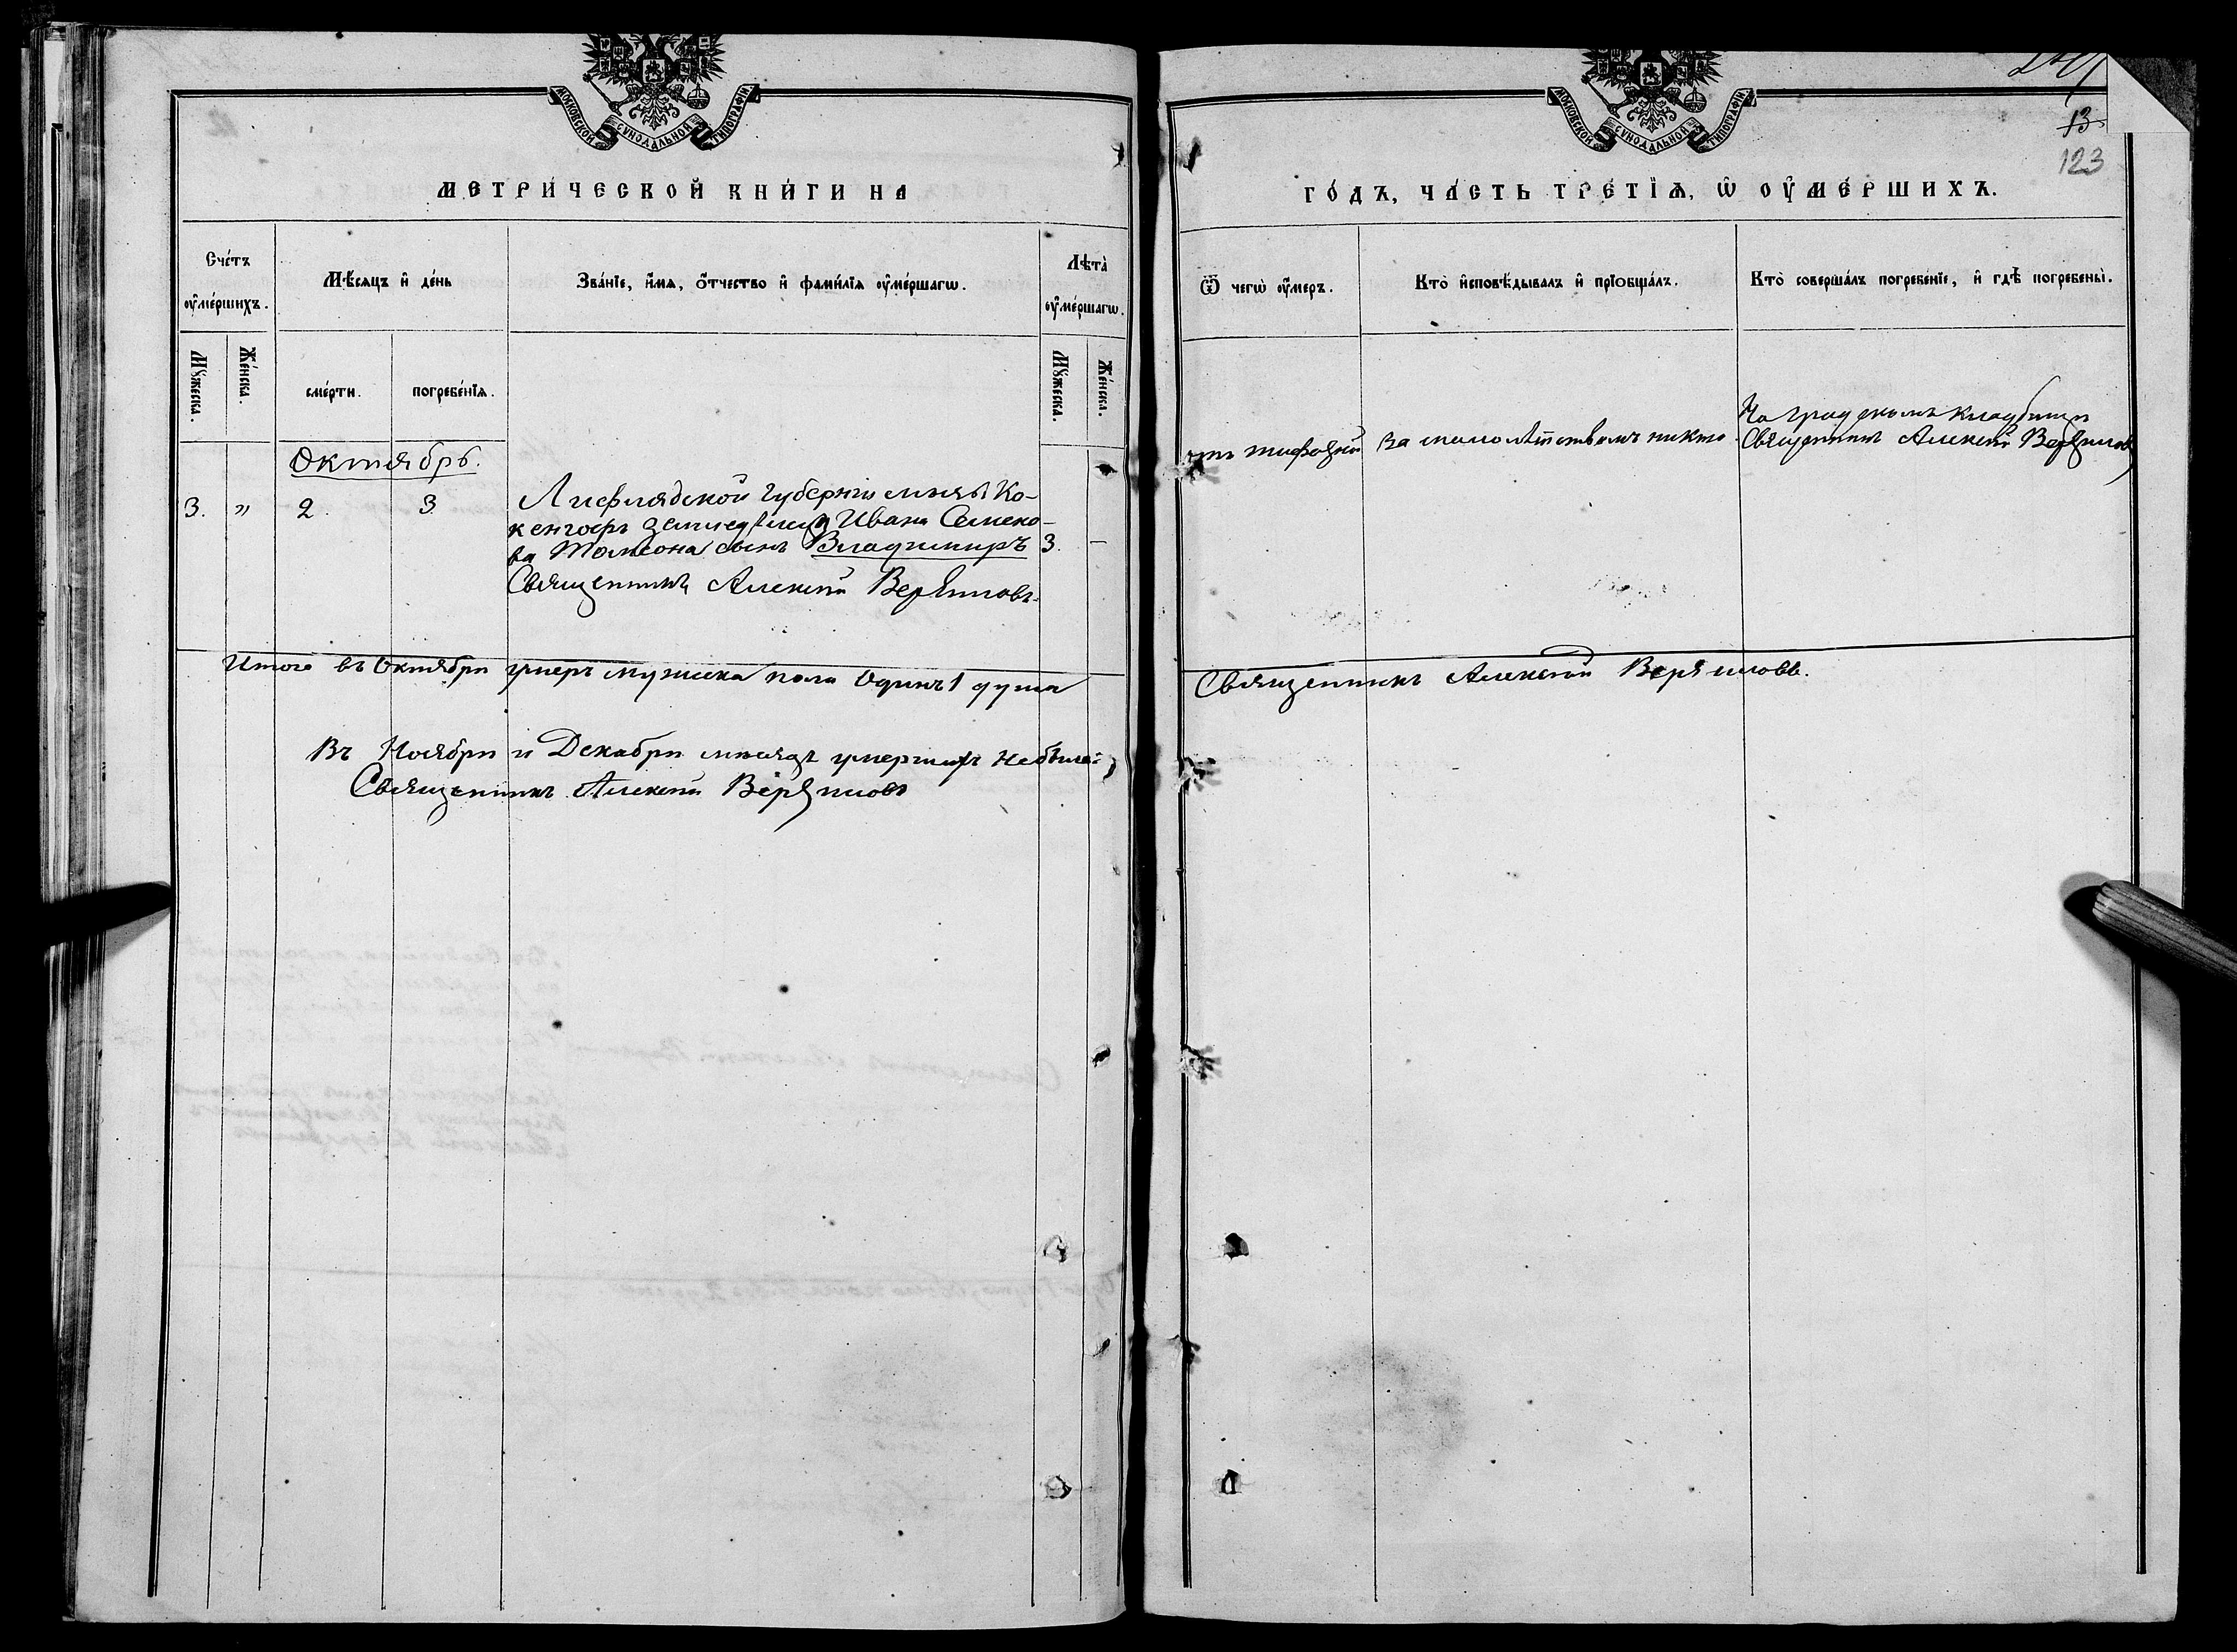 МОСКОВСКОЙ СѴНОДАЛЬНОЙ ТИПОГРАФІИ
МЕТРИ́ЧЕСКОЙ КНИ́ГИ НА
Сче́тъ оу҆ме́ршихъ.
Мѣ́сяцъ и҆ де́нь
Зва́нїе, и҆́мѧ, ѻ҆́тчество и҆ фами́лїѧ оу҆ме́ршагѡ.
Лѣта̀ оу҆ме́ршагѡ.
Мꙋ́жеска.
Же́нска.
сме́рти.
погребе́нїѧ.
Мꙋ́жеска.
Же́нска.
Октябрь.
3. " 2. 3. Лифлядской губерніи мызы Ко-
кенгофъ земледѣльца Ивана Семено-
ва Томсона сынъ Владимиръ 3. —
Священникъ Алексѣй Верѣиновъ
Итого въ Октябри умеръ мужеска пола Одинъ 1 душа
Въ Ноябри и Декабри мѣсяцѣ умершихъ небыло
Священникъ Алексѣй
МОСКОВСКОЙ СѴНОДАЛЬНОЙ ТИПОГРАФІИ
13
123
ГО́ДЪ, ЧА́СТЬ ТРЕ́ТЇѦ, Ѡ҆ ОУ҆МЕ́РШИХЪ.
Ѿ чегѡ̀ оу҆́меръ.
Кто̀ и҆сповѣ́дывалъ и҆ прїѻбща́лъ.
Кто̀ соверша́лъ погребе́нїе, и҆ гдѣ̀ погребены̀.
отъ
За малолѣтствомъ никто
На градскомъ кладбищи
Священникъ Алексѣй
Священникъ Алексѣй